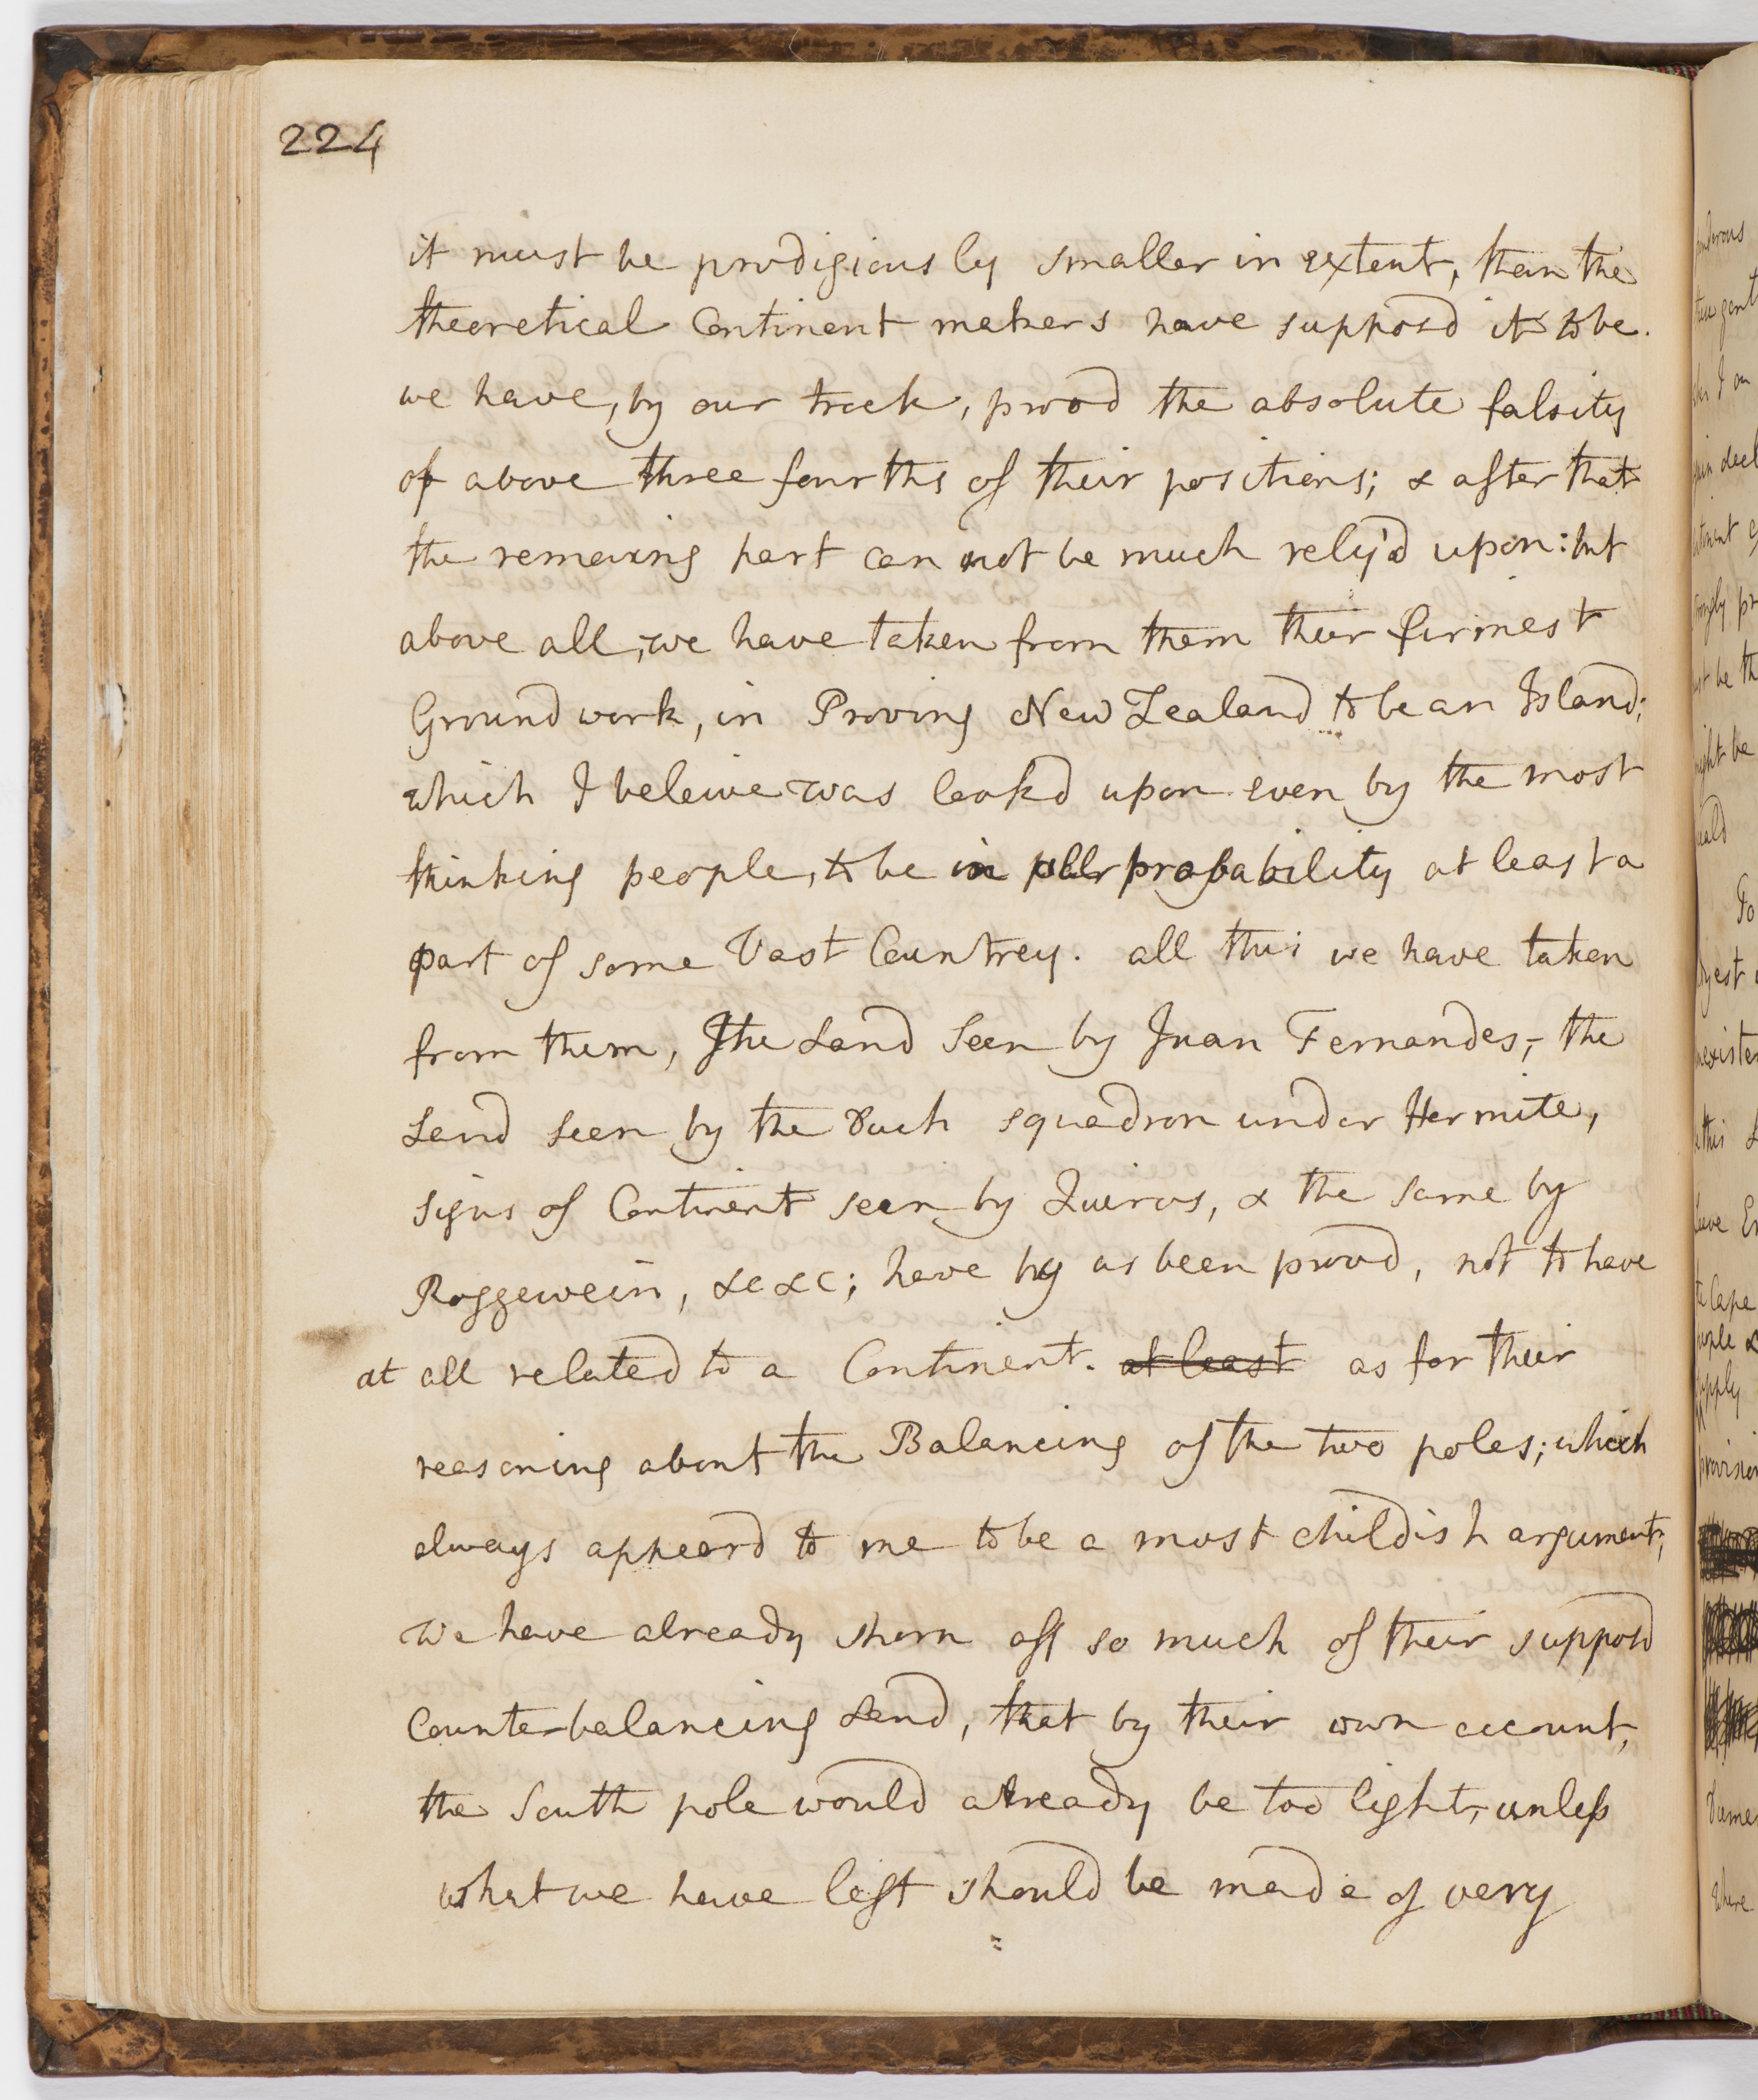 224
it must be prodigiously smaller in extent, than the
theoretical Continent makers have supposd it to be.
we have, by our track, provd the absolute falsity
of above three fourths of their positions; & after that
the remaing part can not be much rely'd upon: but
above all, we have taken from them their firmest
Ground work, in Proving New Zealand to be an Island;
which I beleive was lookd upon even by the most
thinking people, to be in all probability at least a
part of some Vast Countrey. all this we have taken
from them, the Land Seen by Juan Fernandes, the
Land seen by the Duch squadron under Hermite,
signs of Continent seen by Quiros, & the same by
Roggewein, &c &c; have by us been provd, not to have
at all related to a Continent. at least as for their
reasoning about the Balancing of the two poles; which
always appeard to me to be a most childish argument,
We have already shorn off so much of their supposd
Counterbalancing Land, that by their own account,
the South pole would already be too light, unless
what we have left should be made of very
ponderous
To
Cape
where